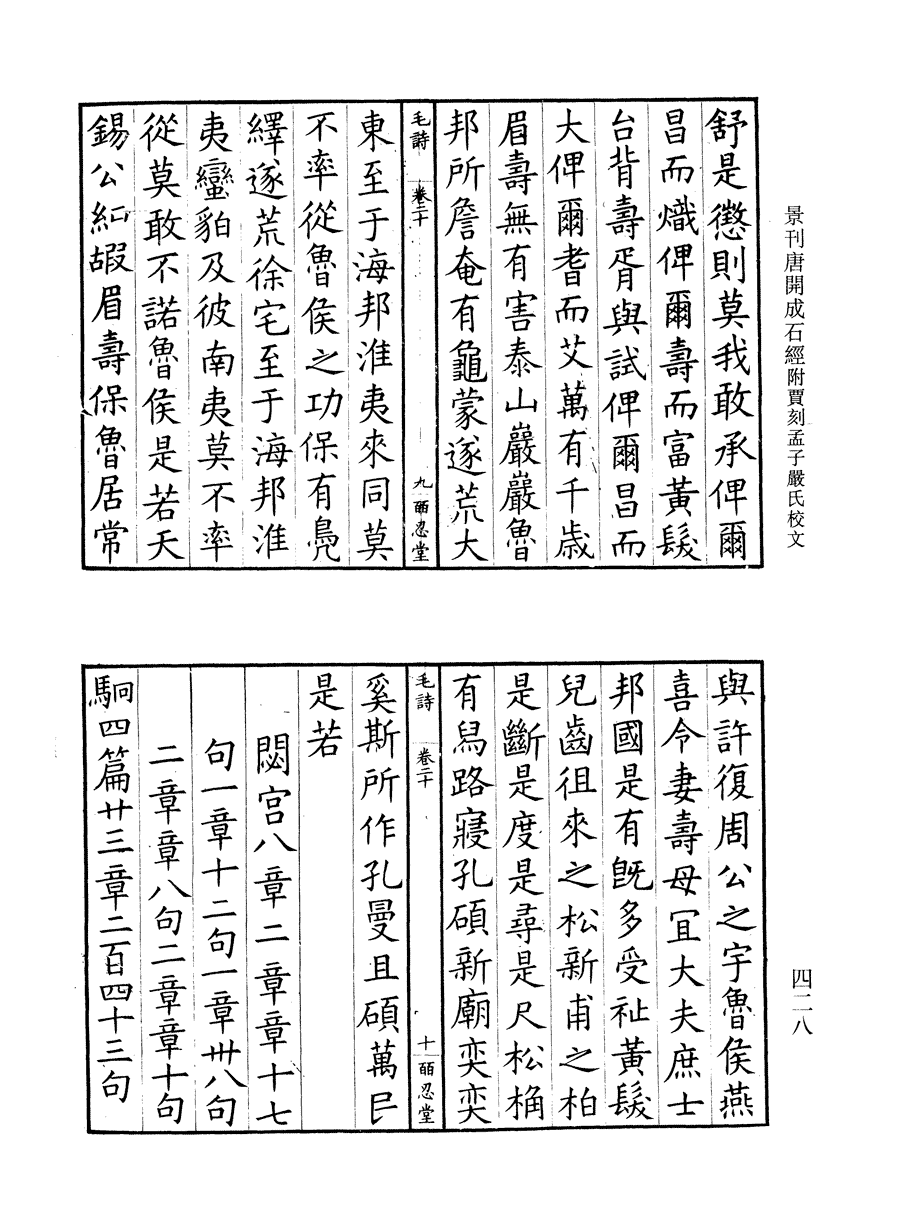 景刊唐開成石經附賈刻孟子嚴氏校文
舒是懲則莫我敢承俾爾
昌而熾俾爾壽而富黃髮
台背壽胥與試俾爾昌而
大俾爾耆而艾萬有千歲
眉壽無有害泰山巖巖魯
邦所詹奄有龜蒙遂荒大
毛詩 卷二十 九 皕忍堂
東至于海邦淮夷來同莫
不率從魯侯之功保有鳧
繹遂荒徐宅至于海邦淮
夷蠻貊及彼南夷莫不率
從莫敢不諾魯侯是若天
錫公純嘏眉壽保魯居常
與許復周公之宇魯侯燕
喜令妻壽母宜大夫庶士
邦國是有旣多受祉黃髮
兒齒徂來之松新甫之柏
是斷是度是尋是尺松桷
有舄路寢孔碩新廟奕奕
毛詩 卷二十 十 皕忍堂
奚斯所作孔曼且碩萬民
是若
閟宮八章二章章十七
句一章十二句一章卅八句
二章章八句二章章十句
駉四篇廿三章二百四十三句
四二八